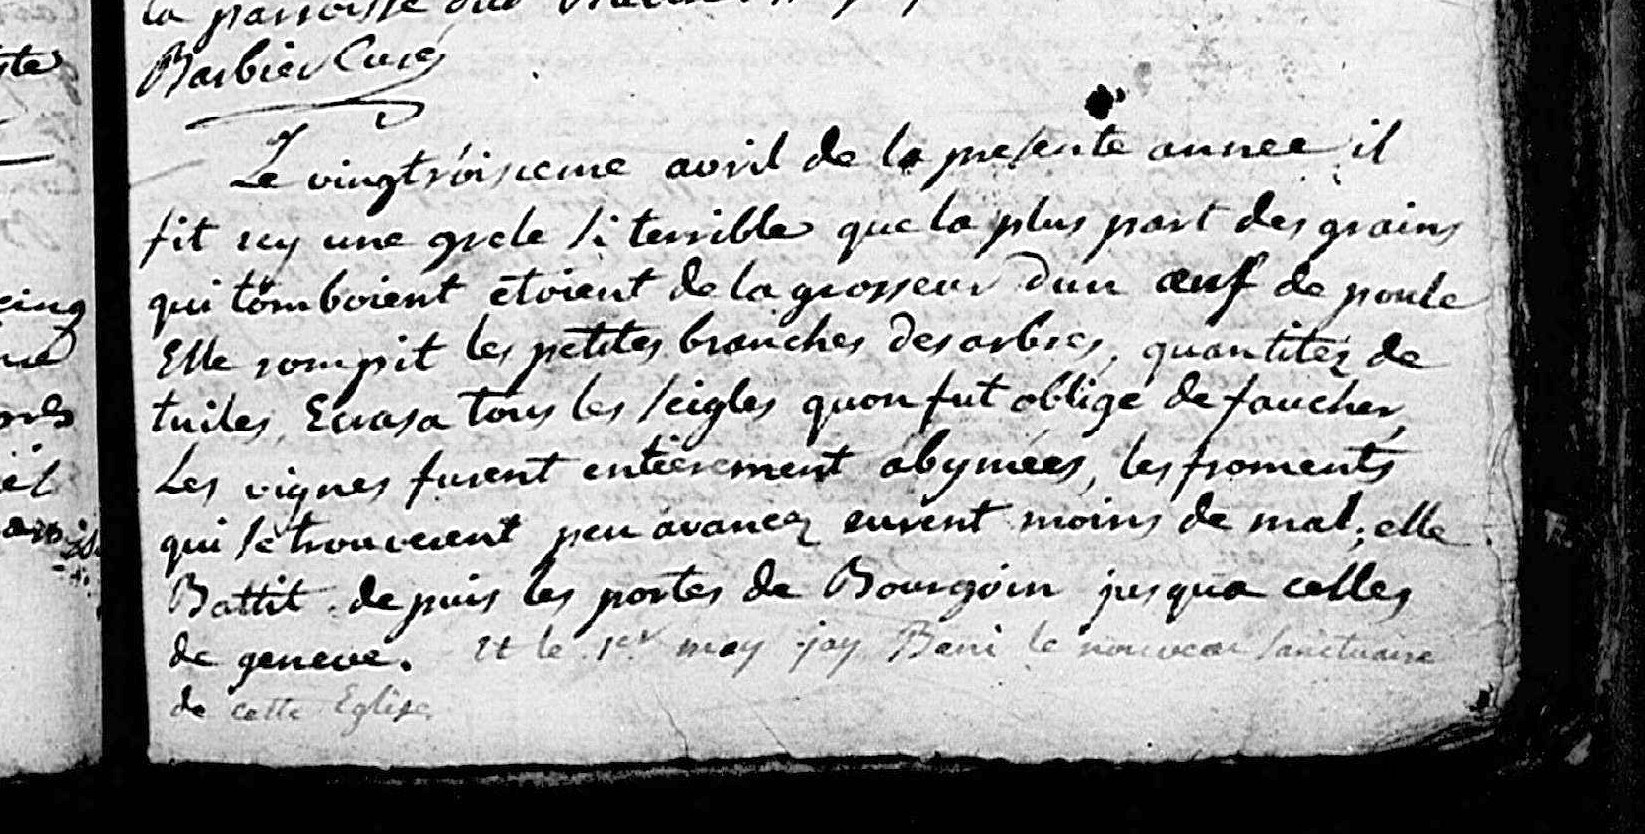 la parroisse
Barbier Curé
Le vingtroisieme avril de la presente annee il
fit icy une grele si terrible que la plus part des grains
qui tomboient etoient de la grosseur dun œuf de poule
Elle rompit les petites branches des arbres, quantitez de
tuiles, Ecrasa tous les seigles quon fut obligé de faucher,
Les vignes furent entierement abymées, les froments
qui se trouverent peu avancez eurent moins de mal; elle
Battit depuis les portes de Bourgoin jusqua celles
de geneve. Et le 1er may jay Beni le nouveau sanctuaire
de cette Eglise